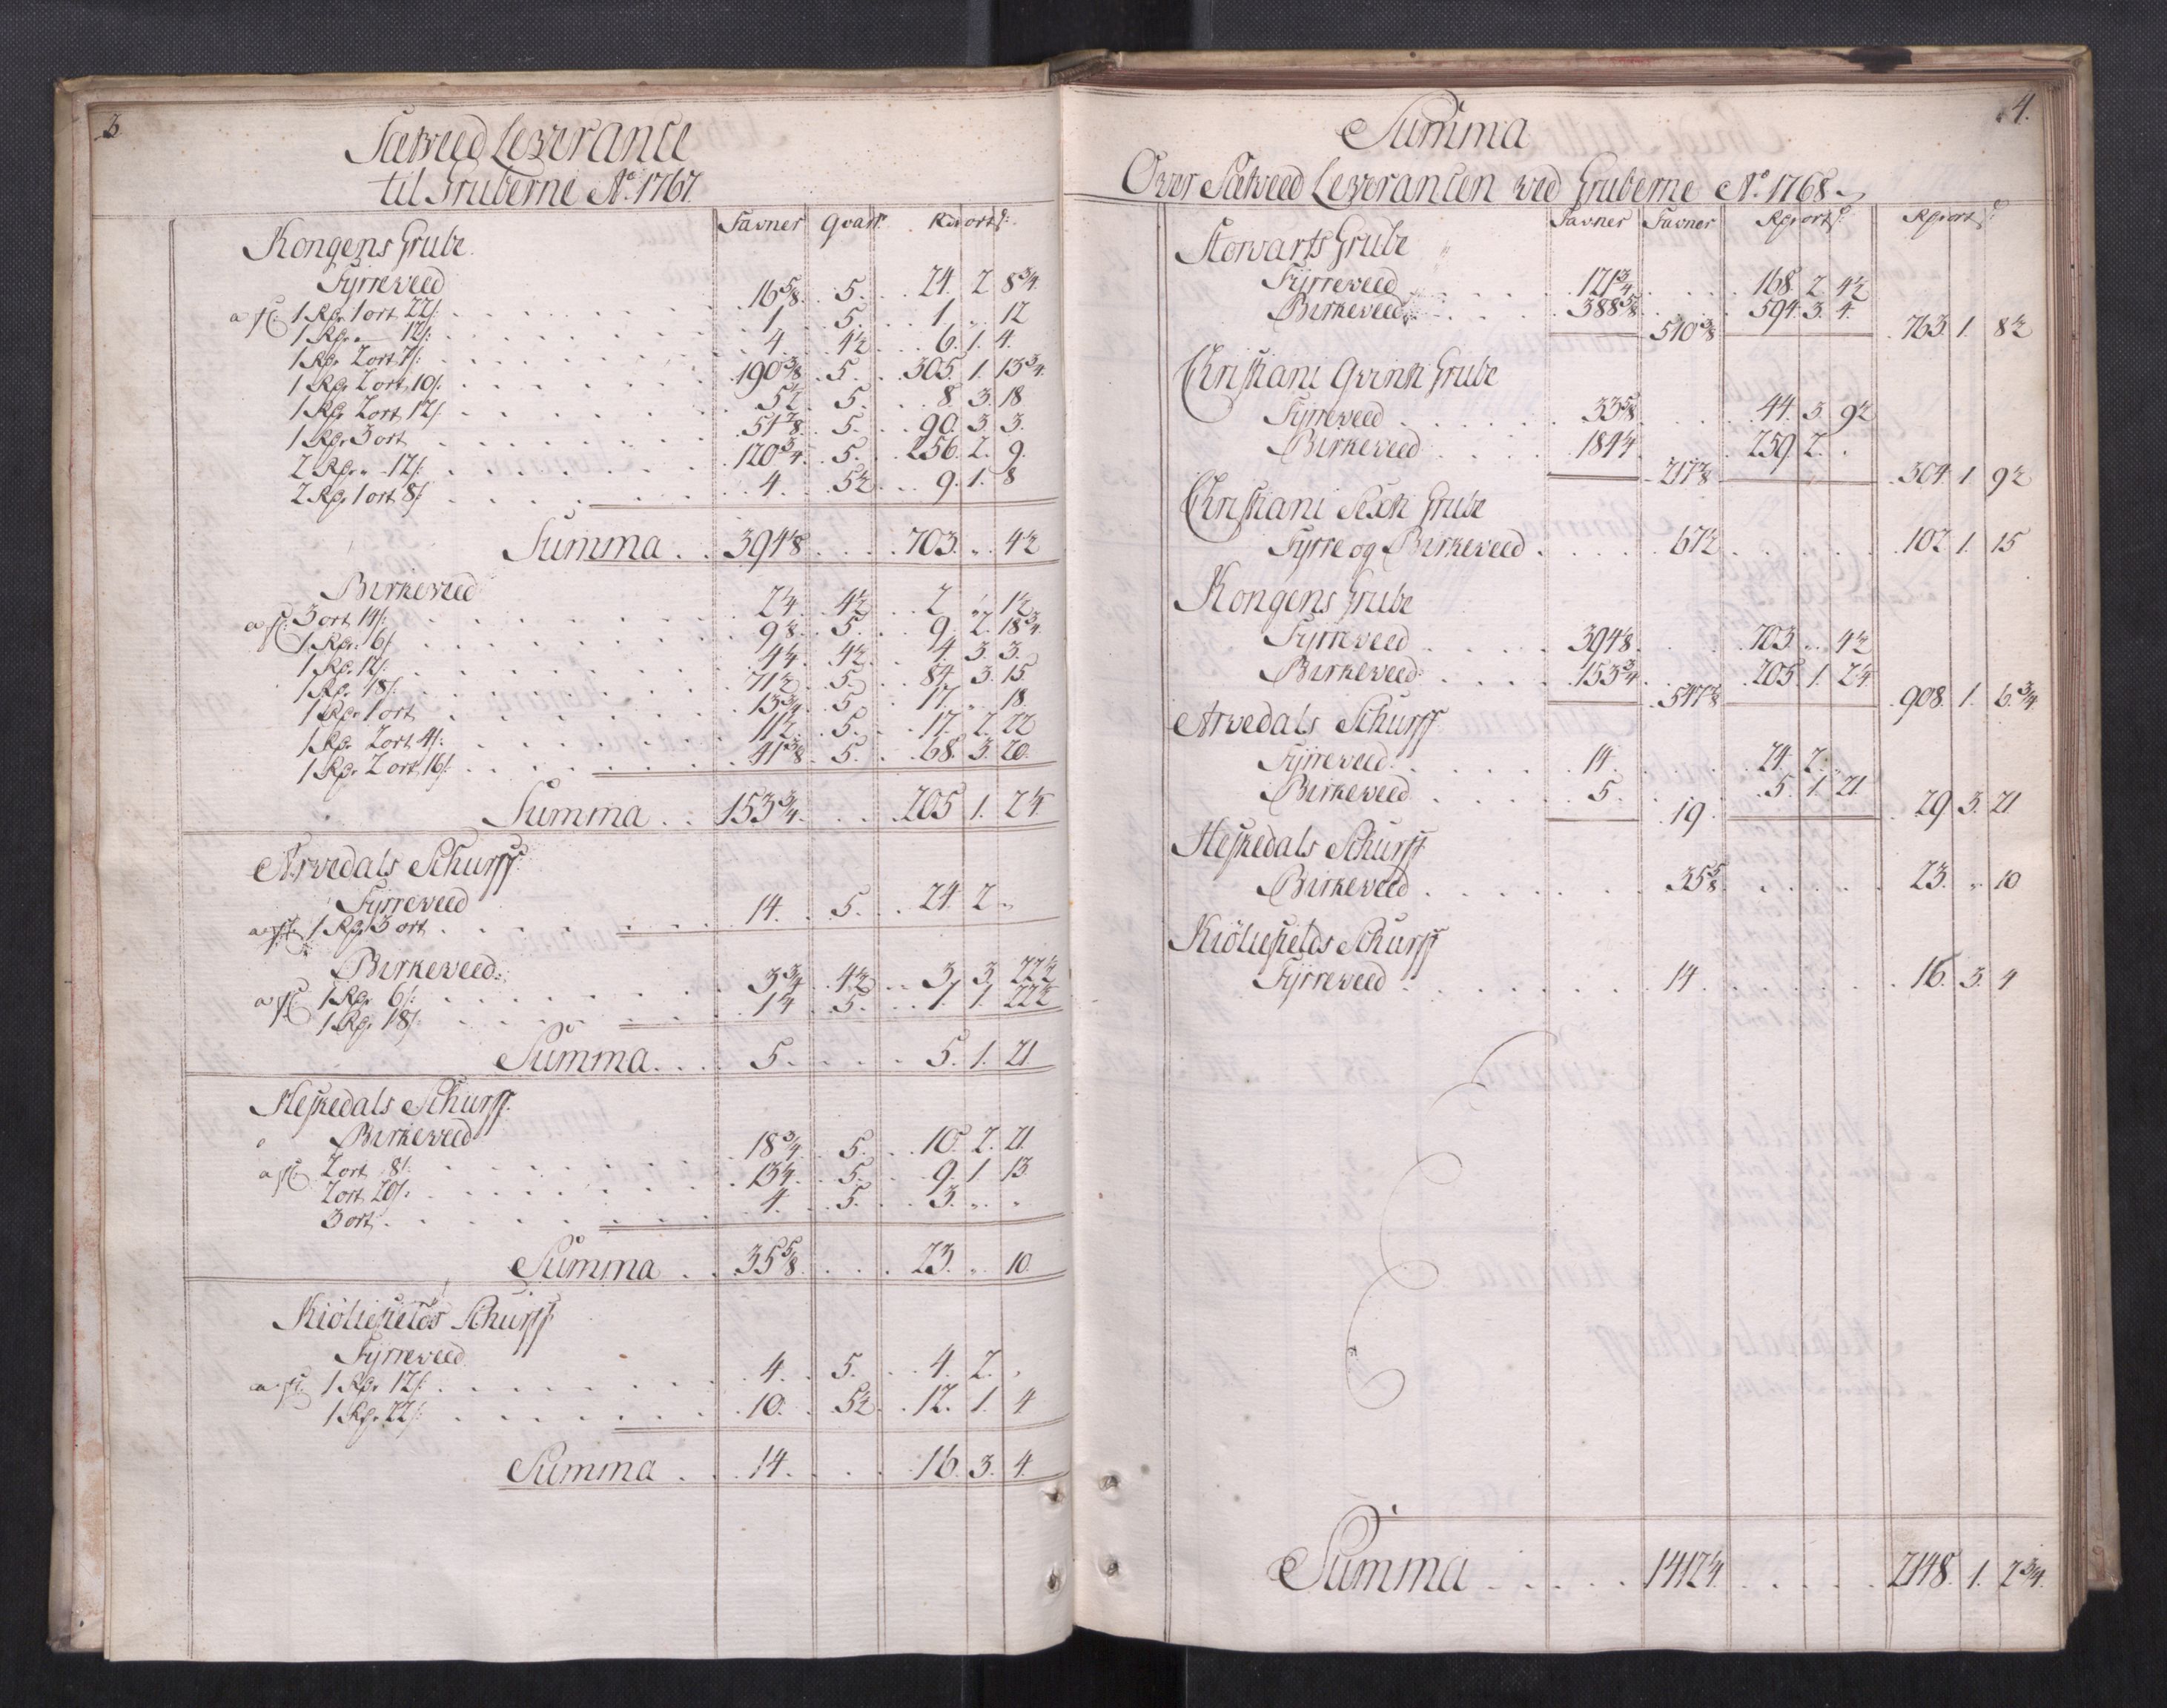 3
Sætveed Leverance
til Gruberne Ao. 1767.
Favner Qvart. Rd ort ſ:
Kongens Grube.
Fyrreveed
a f: 1 Rdr 1 ort 22 ſ: . . . 16 5/8. 5. 24. 2 8 3/4.
1 Rdr „ 12 ſ: . . . 1. 5. 1. „ 12
1 Rdr 2 ort 7 ſ: . . . 4. 4 1/2 6. 1. 4.
1 Rdr 2 ort 10 ſ. . . . 190 3/8. 5. 305. 1. 13 3/4.
1 Rdr 2 ort 12 ſ . . . 5 1/2. 5. 8. 3. 18
1 Rdr 3 ort . . . 51 7/8. 5. 90. 3. 3.
2 Rdr „ 12 ſ: . . . 120 3/4. 5. 256. 2. 9.
2 Rdr 1 ort 8 ſ . . . 4. 5 1/2 9. 1. 8
Summa . . 394 1/8 . . . 703. „ 4 1/2
Birkeveed
a f: 3 ort 14 ſ: . . . 2 1/4. 4 1/2 2 „ 1 1/2
1 Rdr 6 ſ . . . 9 1/8. 5. 9. 2. 18 3/4.
1 Rdr 12 ſ: . . . 4 1/4. 4 1/2 4. 3. 3.
1 Rdr 18 ſ. . . . 71 1/2. 5. 84. 3. 15
1 Rdr 1 ort . . . 13 3/4. 5. 17. „ 18.
1 Rdr 2 ort 4 ſ: . . . 11 1/2. 5. 17. 2. 22
1 Rdr 2 ort 16 ſ: . . . 41 3/8. 5. 68. 3. 20.
Summa . . 153 3/4 . . . 205 1. 2 1/4.
Arvedals Schurff.
Fyrreveed
a f: 1 Rdr 3 ort . . . 14. 5. 24 2 „
Birkeveed.
a f: 1 Rdr 6 ſ: . . . 3 3/4. 4 1/2 3 3. 22 1/2
1 Rdr 18 ſ: . . . 1 1/4. 5. 1 1. 22 1/2
Summa . . . 5. . . . 5. 1. 21
Heskedals Schurff.
Birkeveed
a f: 2 ort 8 ſ: . . . 18 3/4. 5. 10. 2. 21.
2 ort 20 ſ: . . . 13 1/4. 5. 9. 1 13.
3 ort . . . 4. 5. 3. „ „
Summa . . 35 5/8 . . . 23. „ 10.
Kiöliefields Schurff
Fyrreveed
a f: 1 Rdr 12 ſ: . . . 4. 5. 4. 2. „
1 Rdr 22 ſ: . . . 10. 5 1/2 12. 1. 4
Summa . . 14. . . . 16. 3. 4.
4.
Summa
Over Sætveed Leverancen ved Gruberne Ao. 1768.
Favner Favner Rdr ort ſ: Rdr ort ſ:
Storvarts Grube
Fyrreveed . . . 121 3/4 . . . 168. 2. 4 1/2
Birkeveed . . . 388 5/8 . . . 594. 3. 4.
510 3/8 763. 1. 8 1/2
Christiani Qvinti Grube
Fyrreveed . . . 33 5/8 . . . 44. 3 9 1/2
Birkeveed . . . 184 1/4 . . . 259. 2. „
217 7/8 304. 1 9 1/2
Christiani Sexti Grube
Fyrre og Birkeveed . . . 67 1/2 . . . 102. 1. 15
Kongens Grube
Fyrreveed . . . 394 1/8 . . . 703. „ 4 1/2
Birkeveed . . . 153 3/4 . . . 205. 1. 2 1/4
547 7/8 908. 1. 6 3/4.
Arvedals Schurff
Fyrreveed . . . 14. . . . 24. 2. „
Birkeveed . . . 5. . . . 5. 1. 21
19. 29. 3. 21.
Heskedals Schurff
Birkeveed . . . 35 5/8 . . . 23. „ 10
Kiöliefields Schurff
Fyrreveed . . . 14 . . . 16. 3. 4
Summa . . . 1412 1/4 . . . 2148. 1. 2 3/4.